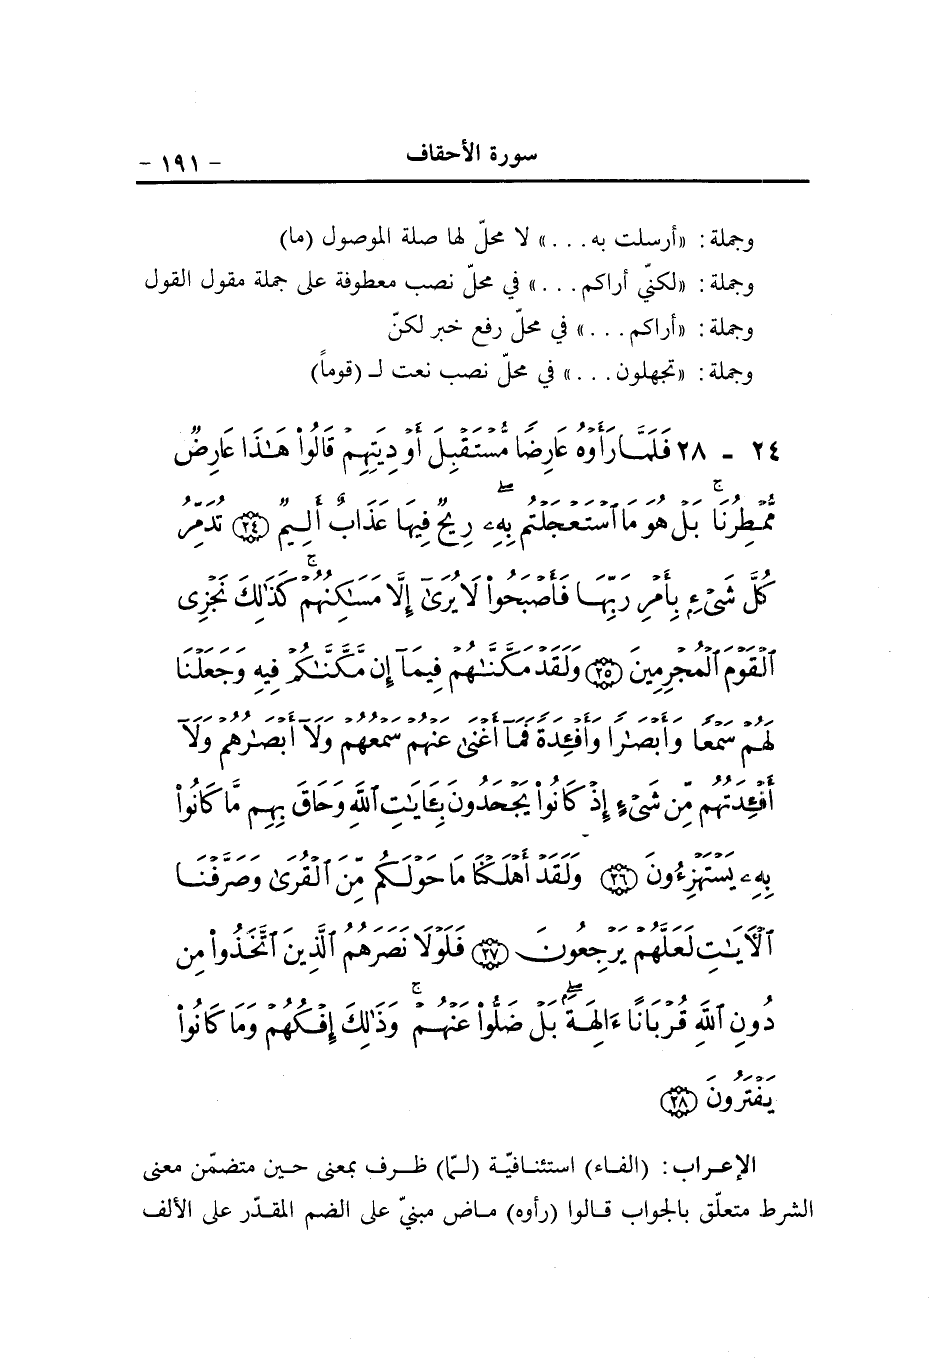 سورة الأحقاف - ١٩١ -
وجملة: «أرسلت به...» لا محلّ لها صلة الموصول (ما)
وجملة: «لكنّي أراكم...» في محلّ نصب معطوفة على جملة مقول القول
وجملة: «أراكم...» في محلّ رفع خبر لكنّ
وجملة: «تجهلون...» في محلّ نصب نعت لـ (قوماً)
٢٤ - ٢٨ فَلَمَّا رَأَوْهُ عَارِضًا مُّسْتَقْبِلَ أَوْدِيَتِهِمْ قَالُوا۟ هَـٰذَا عَارِضٌ
مُّمْطِرُنَا ۚ بَلْ هُوَ مَا ٱسْتَعْجَلْتُم بِهِۦ ۖ رِيحٌ فِيهَا عَذَابٌ أَلِيمٌ ﴿٢٤﴾ تُدَمِّرُ
كُلَّ شَىْءٍۭ بِأَمْرِ رَبِّهَا فَأَصْبَحُوا۟ لَا يُرَىٰٓ إِلَّا مَسَـٰكِنُهُمْ ۚ كَذَٰلِكَ نَجْزِى
ٱلْقَوْمَ ٱلْمُجْرِمِينَ ﴿٢٥﴾ وَلَقَدْ مَكَّنَّـٰهُمْ فِيمَآ إِن مَّكَّنَّـٰكُمْ فِيهِ وَجَعَلْنَا
لَهُمْ سَمْعًا وَأَبْصَـٰرًا وَأَفْـِٔدَةً فَمَآ أَغْنَىٰ عَنْهُمْ سَمْعُهُمْ وَلَآ أَبْصَـٰرُهُمْ وَلَآ
أَفْـِٔدَتُهُم مِّن شَىْءٍ إِذْ كَانُوا۟ يَجْحَدُونَ بِـَٔايَـٰتِ ٱللَّهِ وَحَاقَ بِهِم مَّا كَانُوا۟
بِهِۦ يَسْتَهْزِءُونَ ﴿٢٦﴾ وَلَقَدْ أَهْلَكْنَا مَا حَوْلَكُم مِّنَ ٱلْقُرَىٰ وَصَرَّفْنَا
ٱلْـَٔايَـٰتِ لَعَلَّهُمْ يَرْجِعُونَ ﴿٢٧﴾ فَلَوْلَا نَصَرَهُمُ ٱلَّذِينَ ٱتَّخَذُوا۟ مِن
دُونِ ٱللَّهِ قُرْبَانًا ءَالِهَةًۢ ۖ بَلْ ضَلُّوا۟ عَنْهُمْ ۚ وَذَٰلِكَ إِفْكُهُمْ وَمَا كَانُوا۟
يَفْتَرُونَ ﴿٢٨﴾
الإعراب: (الفاء) استئنافيّة (لمّا) ظرف بمعنى حين متضمّن معنى
الشرط متعلّق بالجواب قالوا (رأوه) ماض مبنيّ على الضم المقدّر على الألف